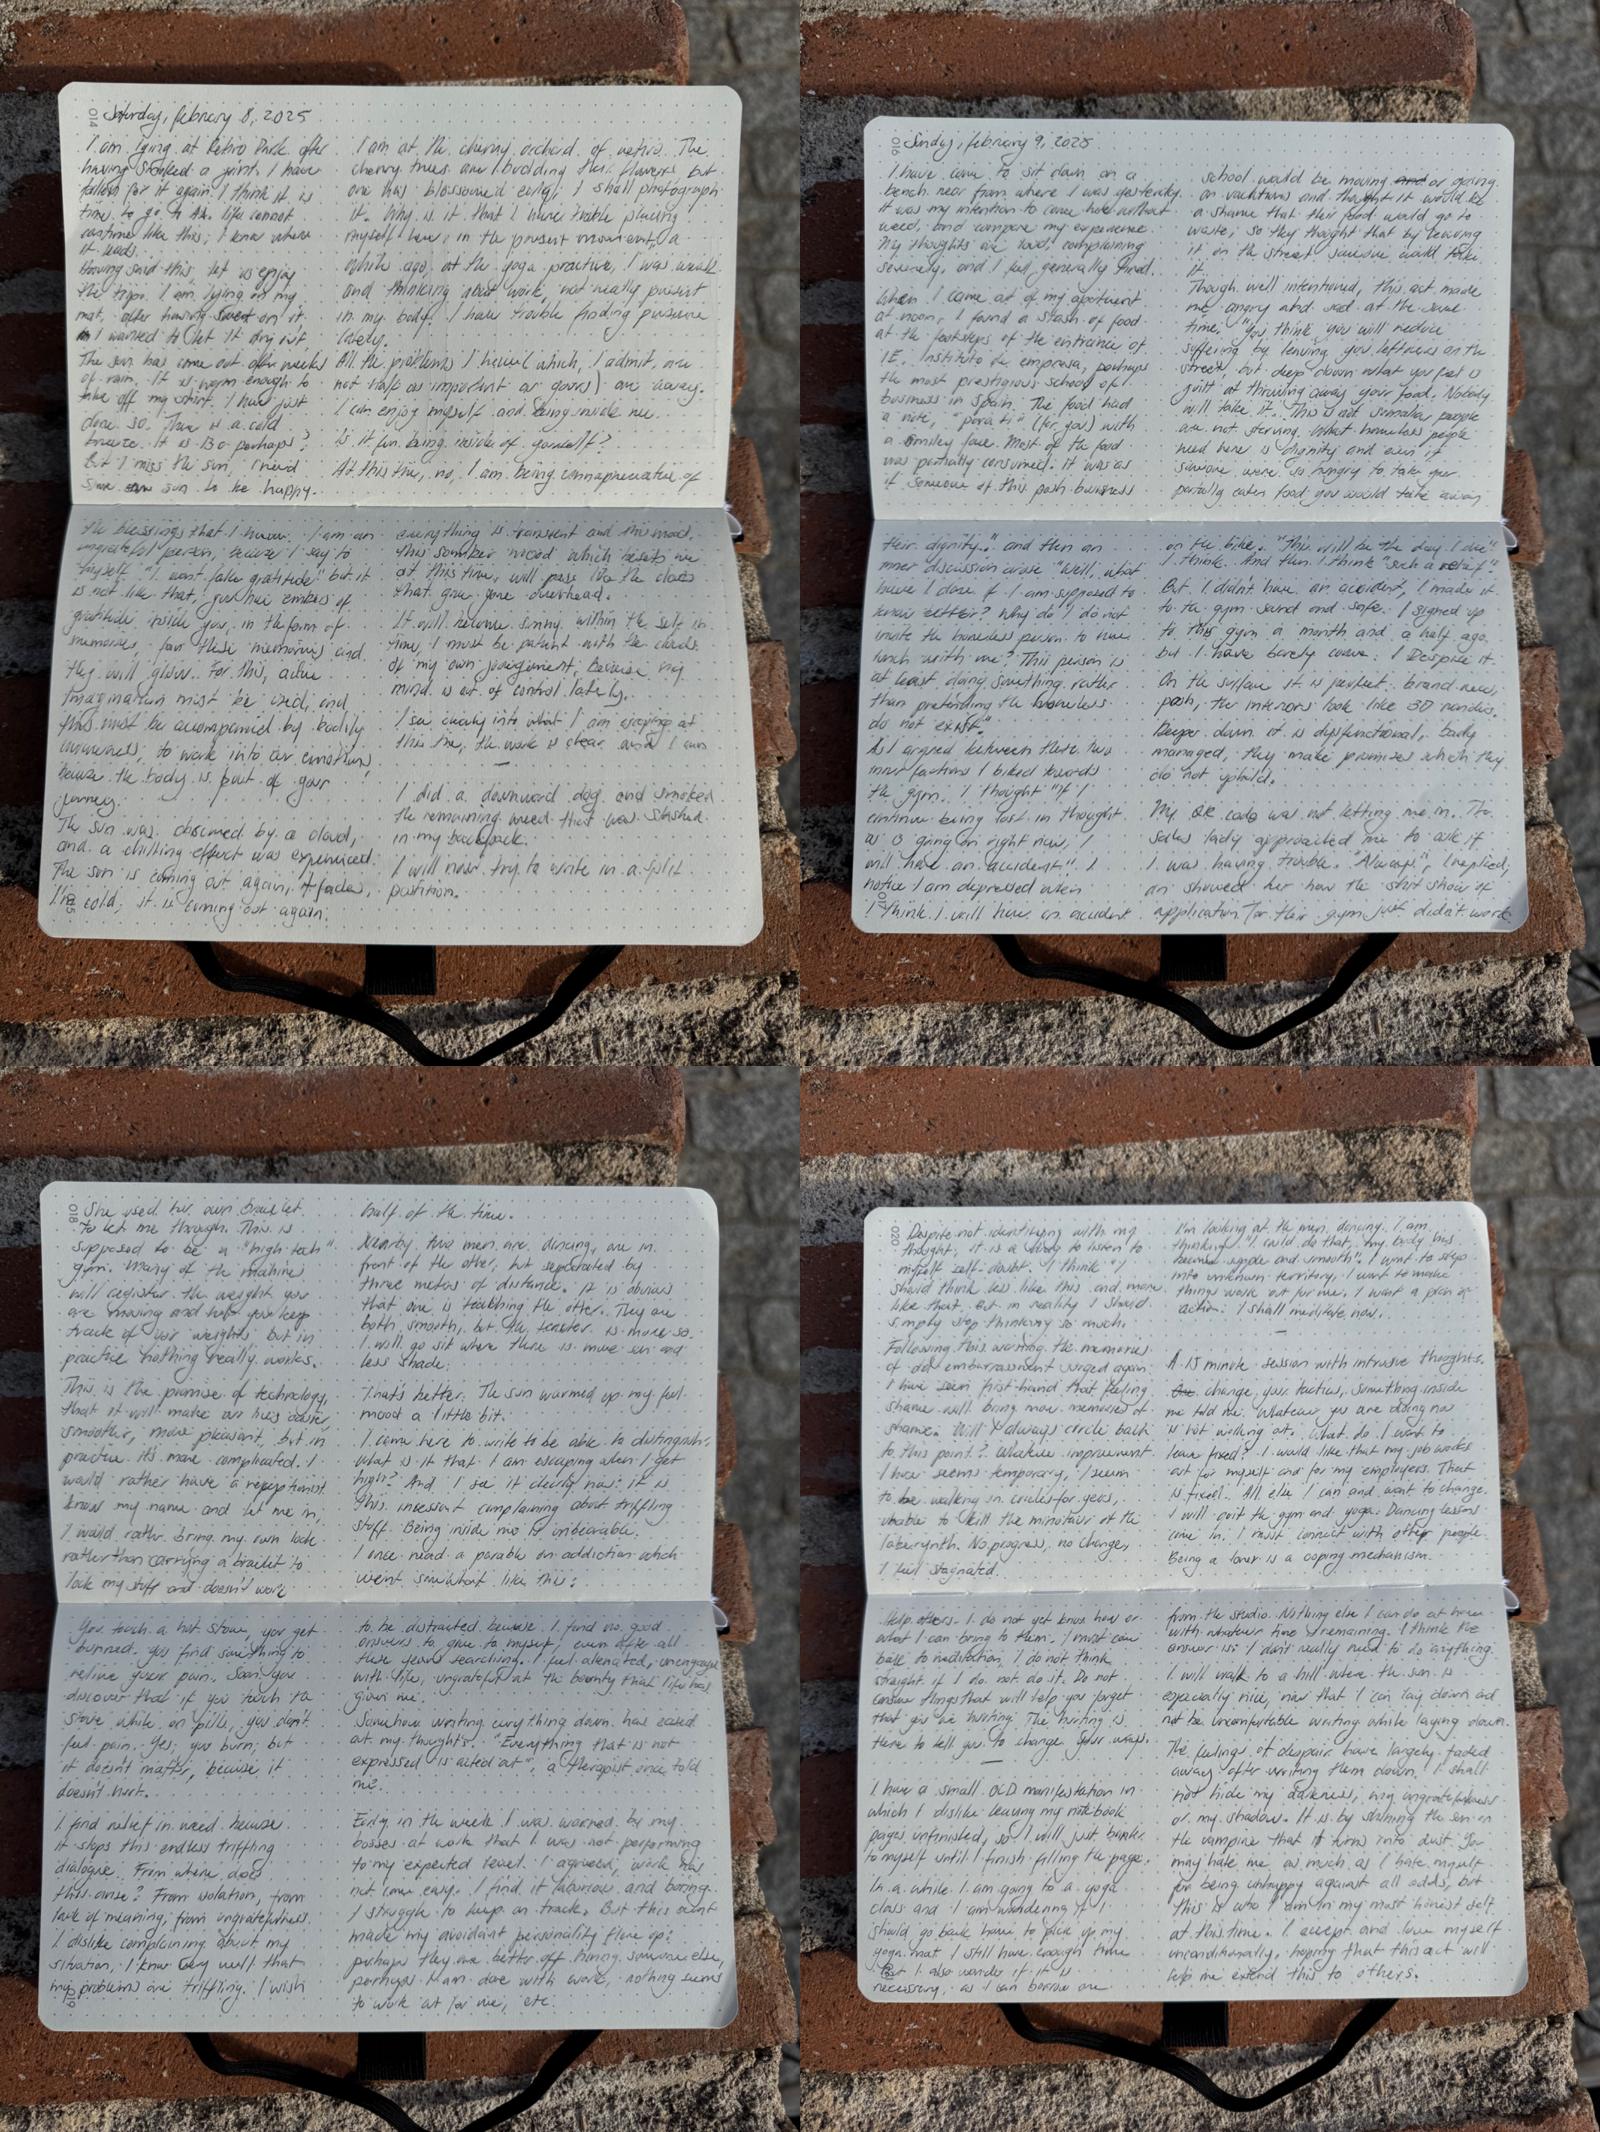 014
Saturday, february 8, 2025
I am lying at Retiro Park after
having smoked a joint. I have
fallen for it again. I think it is
time to go to AA. Life cannot
continue like this; I know where
it leads.
Having said this, let us enjoy
the trip. I am lying on my
mat, after having sweat on it
I wanted to let it dry out.
The sun has come out after weeks
of rain. It is warm enough to
take off my shirt. I have just
done so. There is a cold
breeze. It is 13° perhaps?
But I miss the sun, I need
some sun to be happy.
I am at the cherry orchard of retiro. The
cherry trees are budding their flowers, but
one has blossomed early; I shall photograph
it. Why is it that I have trouble placing
myself here, in the present moment, a
while ago, at the yoga practice, I was weak
and thinking about work, not really present
in my body. I have trouble finding presence
lately.
All the problems I have (which, I admit, are
not half as important as yours) are away.
I can enjoy myself and being inside me.
Is it fun being inside of yourself?
At this time, no, I am being unnapreciative of
the blessings that I have. I am an
ungrateful person, because I say to
myself "I won't fake gratitude" but it
is not like that, you have embers of
gratitude inside you, in the form of
memories, fan these memories and
they will glow. For this, active
imagination must be used, and
this must be acompanied by bodily
awareness; to work into our emotions,
because the body is part of your
journey.
The sun was charmed by a cloud,
and a chilling effect was experienced.
The sun is coming out again, it fades,
I'm cold; it is coming out again.
everything is transient and this mood,
this somber mood which besets me
at this time, will pass like the clouds
that gove gone overhead.
It will become sunny within the self in
time, I must be patient with the clouds
of my own judgement, because my
mind is out of control lately.
I see clearly into what I am escaping at
this time, the work is clear and I am
—
I did a downward dog and smoked
the remaining weed that was stashed
in my backpack.
I will now try to write in a split
position.
015
016
Sunday, february 9, 2025
I have come to sit down on a
bench near from where I was yesterday.
it was my intention to come here without
weed, and compare my experience.
My thoughts are loud, complaining
severely, and I feel generally tired.
When I came out of my apartment
at noon, I found a stash of food
at the footsteps of the entrance of
IE. Instituto de empresa, perhaps
the most prestigious school of
business in Spain. The food had
a note, "para ti" (for you) with
a smiley face. Most of the food
was partially consumed. It was as
if someone of this posh business
school would be moving and or going
on vacations and thought it would be
a shame that their food would go to
waste; so they thought that by leaving
it on the street someone would take
it.
Though well intentioned, this act made
me angry and sad at the same
time; "You think you will reduce
suffering by leaving you leftovers on the
street, but deep down what you feel is
guilt at throwing away your food. Nobody
will take it. This is not somalia, people
are not starving. What homeless people
need here is dignity and even if
someone were so hungry to take your
partially eaten food you would take away
their dignity." and then an
inner discussion arose "Well, what
have I done if I am supposed to
know better? Why do I do not
invite the homeless person to have
lunch with me? This person is
at least doing something rather
than pretending the homeless
do not exist."
As I argued between these two
inner factions I biked towards
the gym. I thought "if I
continue being lost in thought
as is going on right now, I
will have an accident". I
notice I am depressed when
I think I will have an accident
on the bike. "This will be the day I die"
I think. And then I think "such a relief"
But I didn't have an accident, I made it
to the gym sound and safe. I signed up
to this gym a month and a half ago
but I have barely come: I Despise it.
On the surface it is perfect: brand-new,
posh, the interiors look like 3D renders.
Deeper down it is dysfunctional, badly
managed, they make promises which they
do not uphold.
My QR code was not letting me in. The
sales lady approached me to ask if
I was having trouble. "Always", I replied,
an showed her how the shit show of
application for their gym just didn't work.
018
She used her own bracelet
to let me through. This is
supposed to be a "high-tech"
gym. Many of the machines
will register the weight you
are moving and help you keep
track of your weights, but in
practice nothing really works.
This is the promise of technology,
that it will make our lives easier,
smoother, more pleasant, but in
practice it's more complicated. I
would rather have a receptionist
know my name and let me in,
I would rather bring my own lock
rather than carrying a bracelet to
lock my stuff and doesn't work
half of the time.
Nearby, two men are dancing, one in
front of the other, but separated by
three meters of distance. It is obvious
that one is teaching the other. They are
both smooth, but the teacher is more so.
I will go sit where there is more sun and
less shade.
That's better. The sun warmed up my foul
mood a little bit.
I came here to write to be able to distinguish,
what is it that I am escaping when I get
high? And I see it clearly now: it is
this incessant complaining about triffling
stuff. Being inside me is unbearable.
I once read a parable on addiction which
went somewhat like this:
You touch a hot stove, you get
burned. you find something to
relieve your pain. Soon you
discover that if you touch the
stove while on pills, you don't
feel pain. Yes; you burn; but
it doesn't matter, because it
doesn't hurt.
I find relief in weed because
it stops this endless triffling
dialogue. From where does
this arise? From isolation, from
lack of meaning, from ungratefulness.
I dislike complaining about my
situation, I know very well that
my problems are triffling. I wish
to be distracted because I find no good
answers to give to myself, even after all
these years searching. I feel alienated, unengaged
with life, ungrateful at the bounty that life has
given me.
Somehow writing everything down has eased
out my thoughts. "Everything that is not
expressed is acted out", a therapist once told
me.
Early in the week I was warned by my
bosses at work that I was not performing
to my expected level. I agreed, work has
not come easy. I find it laborious and boring.
I struggle to keep on track. But this event
made my avoidant personality flare up:
perhaps they are better off hiring someone else,
perhaps I am done with work, nothing seems
to work out for me, etc.
019
020
Despite not identifying with my
thought, it is a doozy to listen to
myself self-doubt. I think "I
should think less like this and more
like that, but in reality I should
simply stop thinking so much.
Following this writing the memories
of old embarrassment surged again
I have seen first-hand that feeling
shame will bring more memories of
shame. Will I always circle back
to this point? Whatever improvement
I have seems temporary, I seem
to be walking in circles for years,
unable to kill the minotaur of the
labyrinth. No progress, no change,
I feel stagnated.
I'm looking at the men dancing. I am
thinking "I could do that, my body has
become supple and smooth". I want to step
into unknown territory, I want to make
things work out for me, I want a plan of
action. I shall meditate now.
—
A 15 minute session with intrusive thoughts.
change your tactics, something inside
me told me. Whatever you are doing now
is not working out. What do I want to
leave fixed? I would like that my job works
out for myself and for my employers. That
is fixed. All else I can and want to change.
I will quit the gym and yoga. Dancing lessons
come in. I must connect with other people.
Being a loner is a coping mechanism.
Help others. I do not yet know how or
what I can bring to them. I must come
back to meditation, I do not think
straight if I do not do it. Do not
consume things that will help you forget
that you are hurting. The hurting is
there to tell you to change your ways.
—
I have a small OCD manifestation in
which I dislike leaving my notebook
pages unfinished, so I will just banter
to myself until I finish filling the page.
In a while I am going to a yoga
class and I am wondering if I
should go back home to pick up my
yoga mat. I still have enough time
But I also wonder if it is
necessary, as I can borrow one
from the studio. Nothing else I can do at home
with whatever time remaining. I think the
answer is: I don't really need to do anything.
I will walk to a hill where the sun is
especially nice, now that I can lay down and
not be uncomfortable writing while laying down.
The feelings of despair have largely faded
away after writing them down. I shall
not hide my darkness, my ungratefulness
or my shadow. It is by shining the sun on
the vampire that it turns into dust. You
may hate me as much as I hate myself
for being unhappy against all odds, but
this is who I am in my most honest self
at this time. I accept and love myself
unconditionally, hoping that this act will
help me extend this to others.